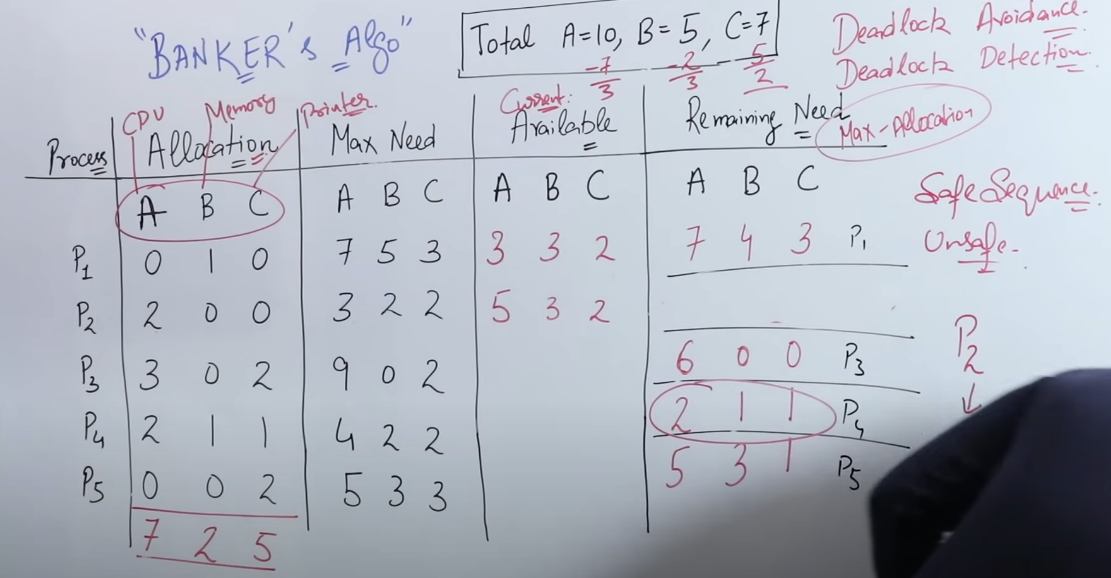 "BANKER's Algo"
Total A=10, B=5, C=7
-7 -2 -5
3 3 2
Deadlock Avoidance.
Deadlock Detection.
CPU Memory Printer.
Process Allocation Max Need Current: Available Remaining Need
Max-Allocation
A B C A B C A B C A B C
P1 0 1 0 7 5 3 3 3 2 7 4 3 P1
P2 2 0 0 3 2 2 5 3 2
P3 3 0 2 9 0 2 6 0 0 P3
P4 2 1 1 4 2 2 2 1 1 P4
P5 0 0 2 5 3 3 5 3 1 P5
7 2 5
Safe Sequence.
Unsafe.
P2
↓